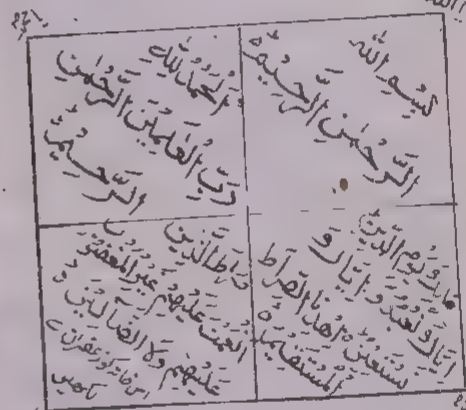 بِسْمِ اللّٰهِ
الرَّحْمٰنِ الرَّحِيْمِ
اَلْحَمْدُ لِلّٰهِ
رَبِّ الْعٰلَمِيْنَ الرَّحْمٰنِ
الرَّحِيْمِ
مٰلِكِ يَوْمِ الدِّيْنِ
اِيَّاكَ نَعْبُدُ وَ اِيَّاكَ وَ
نَسْتَعِيْنُ اِهْدِنَا الصِّرَاطَ
الْمُسْتَقِيْمَ
صِرَاطَ الَّذِيْنَ
اَنْعَمْتَ عَلَيْهِمْ غَيْرِ الْمَغْضُوْبِ
عَلَيْهِمْ وَلَا الضَّآلِّيْنَ
اس خانہ کو زعفران سے
لکھیں